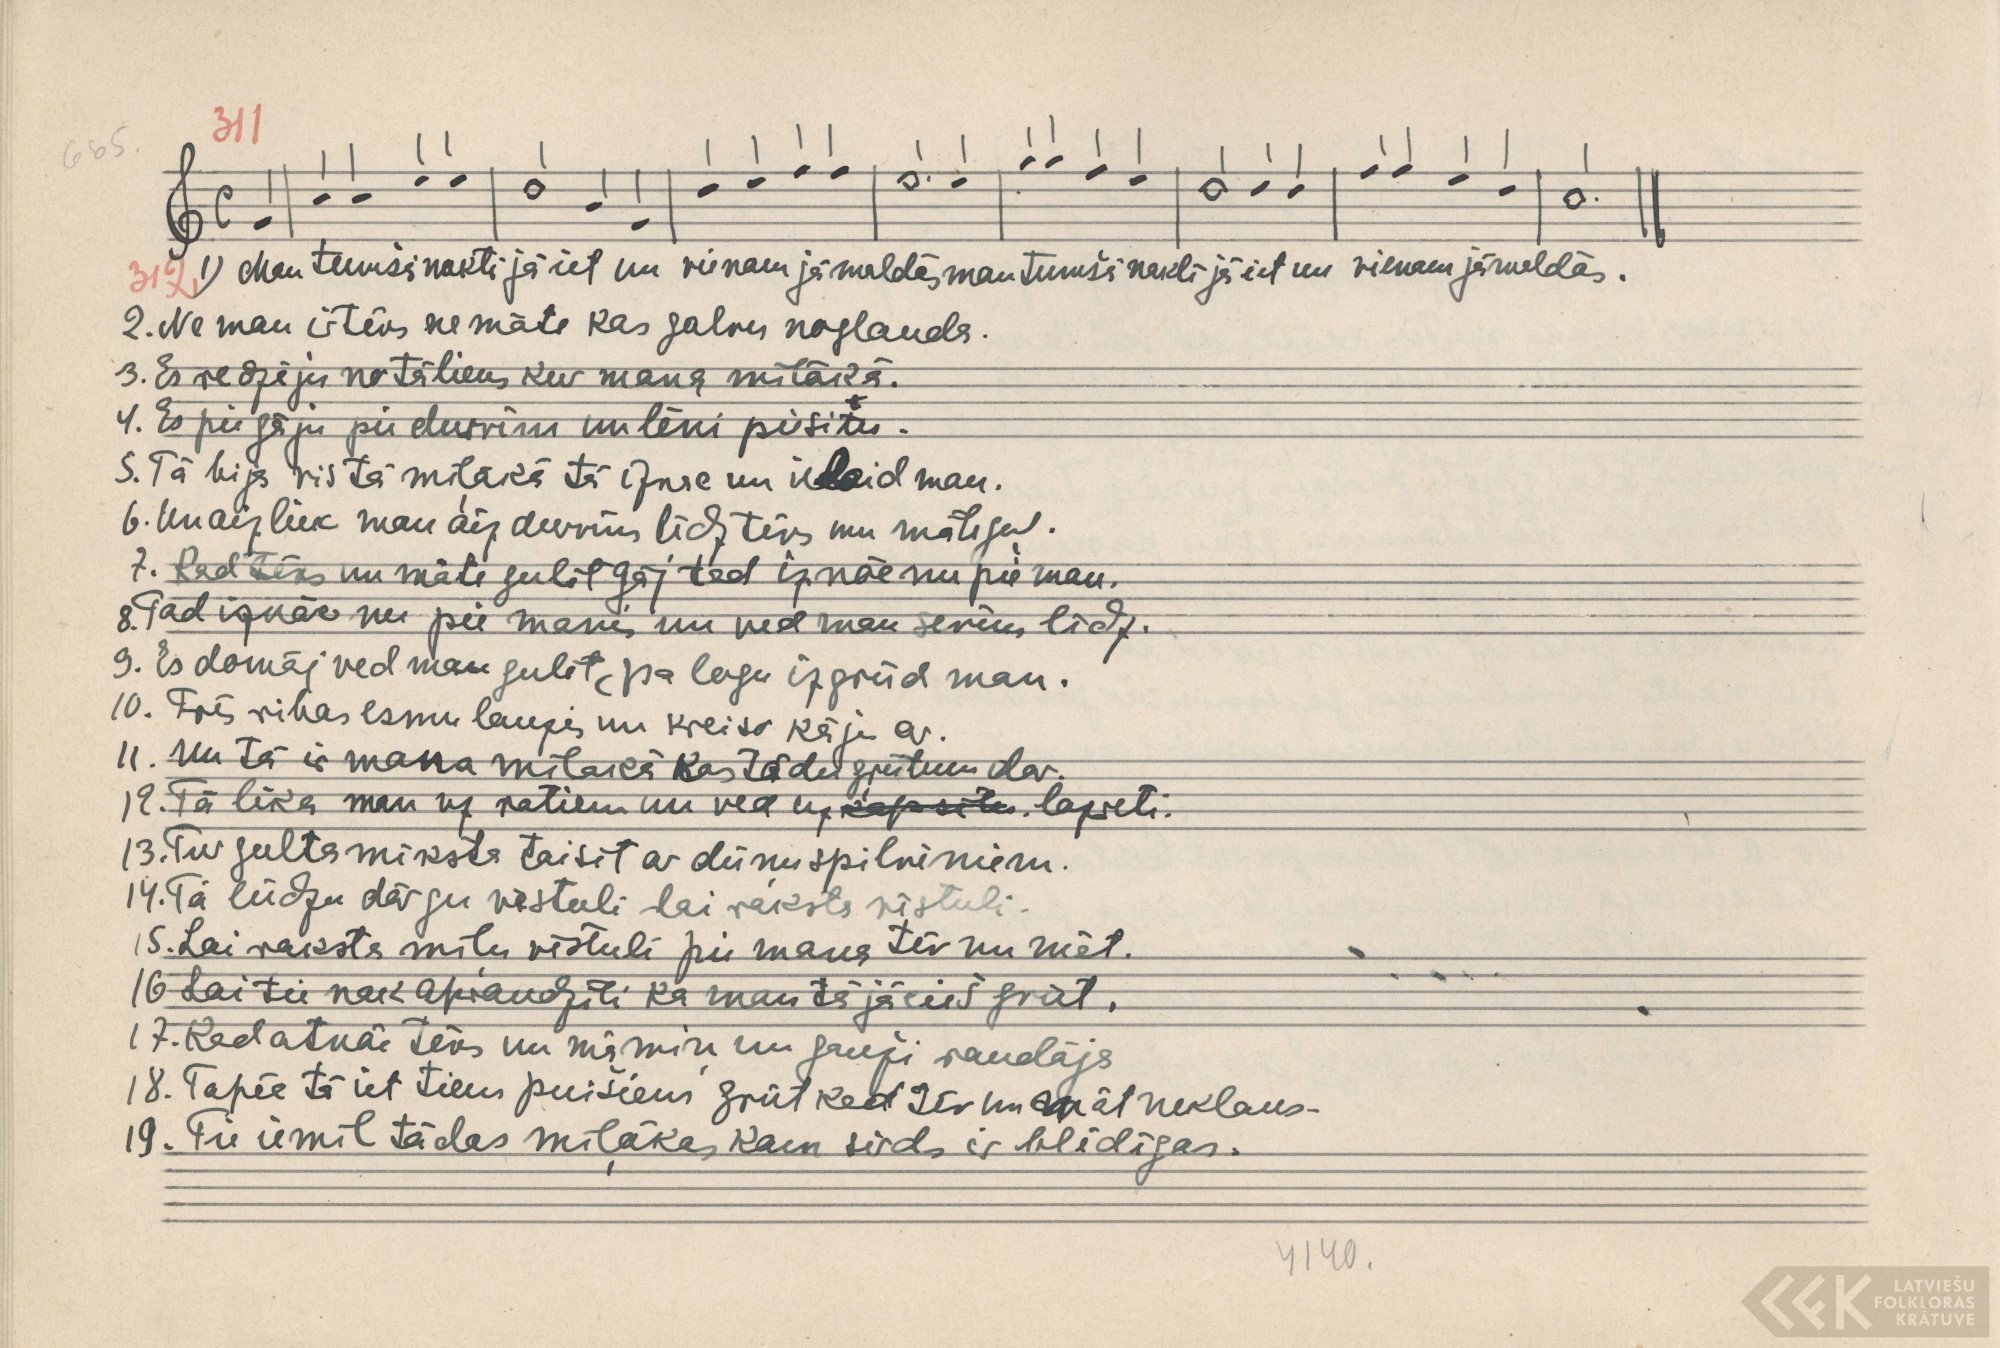 311
665.
312 1) Man tumšā naktī jā iet un vienam jāmaldās man tumšā naktī jā iet un vienam jāmaldās.
2. Ne man ir tēvs ne māte kas galvu noglauda.
3. Es redzēju no tāliens kur mana mīļākā.
4. Es piegāju pie durvīm un lēni piesitu.
5. Tā bija vis tā mīļākā tā iznāc un ielaid man.
6. Un aizliek man aiz durvīm līdz tēvs un māte guļ.
7. Kad tēvs un māte gulēt gāj tad iznāc nu pie man.
8. Tad iznāc nu pie manis un ved man sevīm līdz.
9. Es domāj ved man gulēt, pa logu izgrūd man.
10. Trīs ribas esmu lauzis un kreiso kāju ar.
11. Un tā ir mana mīļākā kas tādu grūtum dar.
12. Tā lika man uz ratiem un ved uz lazreti.
13. Tur gulta mīksta taisīt ar dūnu spilveniem.
14. Tā lūdzu dārgu vēstuli lai raksta vēstuli.
15. Lai raksta mīļu vēstuli pie mana tēv un māt.
16 Lai tie nāk apraudzīti ka man tā jācieš grūt.
17. Kad atnāc tēvs un māmiņ un gauži raudāja
18. Tapēc tā iet tiem puišiem grūt kad tēv un māt neklaus-
19. Tie iemīl tādas mīļākas kam sirds ir blēdīgas.
4140.
LATVIEŠU
FOLKLORAS
KRĀTUVE